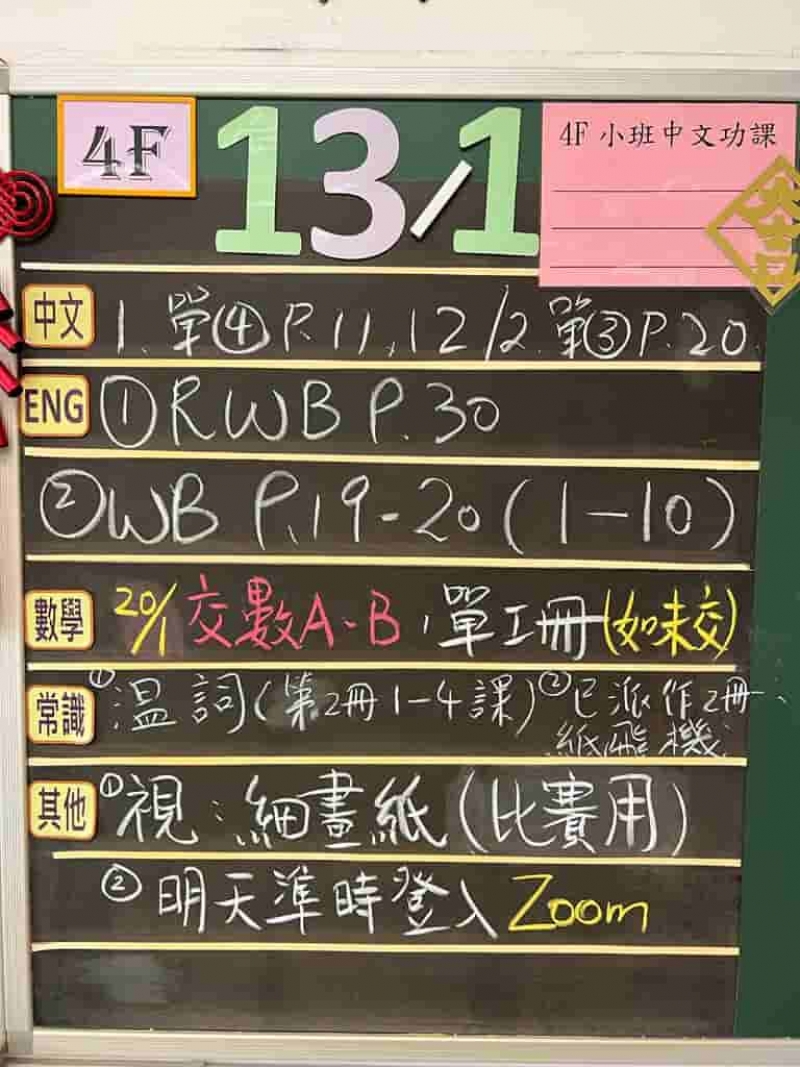 4F 13/1 4F 小班中文功課
大吉
中文 1. 單④P.11,12/2.單③P.20
ENG ①RWB P.30
②WB P.19-20(1-10)
數學 20/1 交數A、B,單工冊(如未交)
常識 ①溫詞(第2冊1-4課)②已派作2冊、
紙飛機
其他 ①視:細畫紙(比賽用)
②明天準時登入Zoom